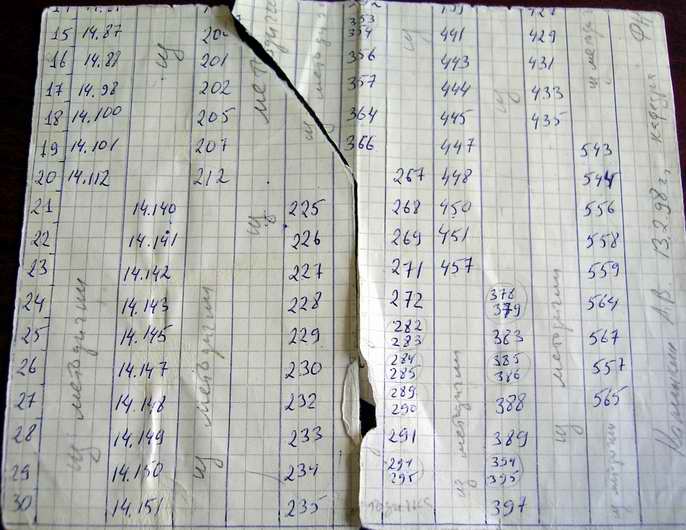 353
15 14.87 354 441 429
16 14.88 201 356 443 431
17 14.98 202 357 444 433
18 14.100 205 364 445 435
19 14.101 207 366 447 543
20 14.112 212 267 448 544
21 14.140 225 268 450 556
22 14.141 226 269 451 558
23 14.142 227 271 457 559
24 14.143 228 272 378 379 564
25 14.145 229 282 283 383 567
26 14.147 230 284 285 385 386 557
27 14.148 232 289 290 388 565
28 14.149 233 291 389
29 14.150 234 294 295 394 395
30 14.151 235 397
из методички
из методички
из методички
из методички
из
13.2.98г., кафедра ФН